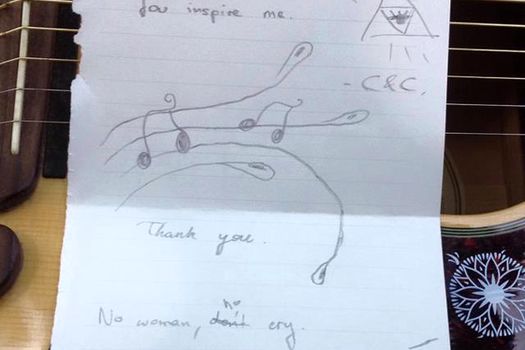 You inspire me.
- C&C.
Thank you.
no
No woman, don't cry.